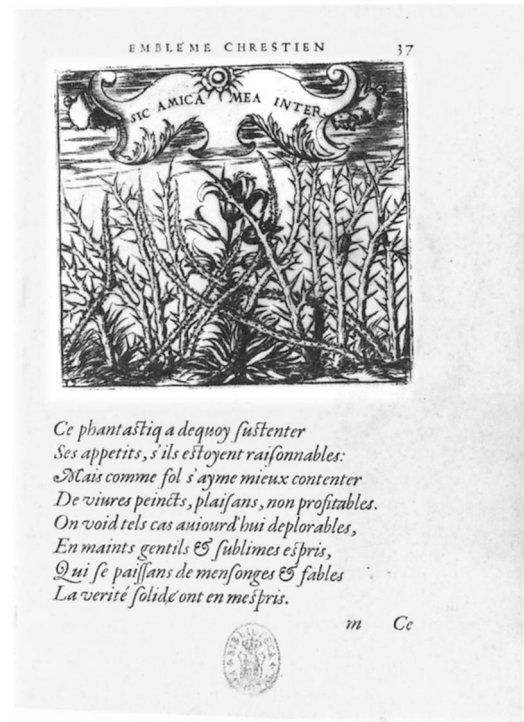 EMBLEME CHRESTIEN 37
SIC AMICA MEA INTER
Ce phantaſtiq a dequoy ſuſtenter
Ses appetits, s'ils eſtoyent raiſonnables:
Mais comme fol s'ayme mieux contenter
De viures peincts, plaiſans, non profitables.
On void tels cas auiourd'hui deplorables,
En maints gentils & ſublimes eſpris,
Qui ſe paiſſans de menſonges & fables
La verité ſolide ont en meſpris.
m Ce